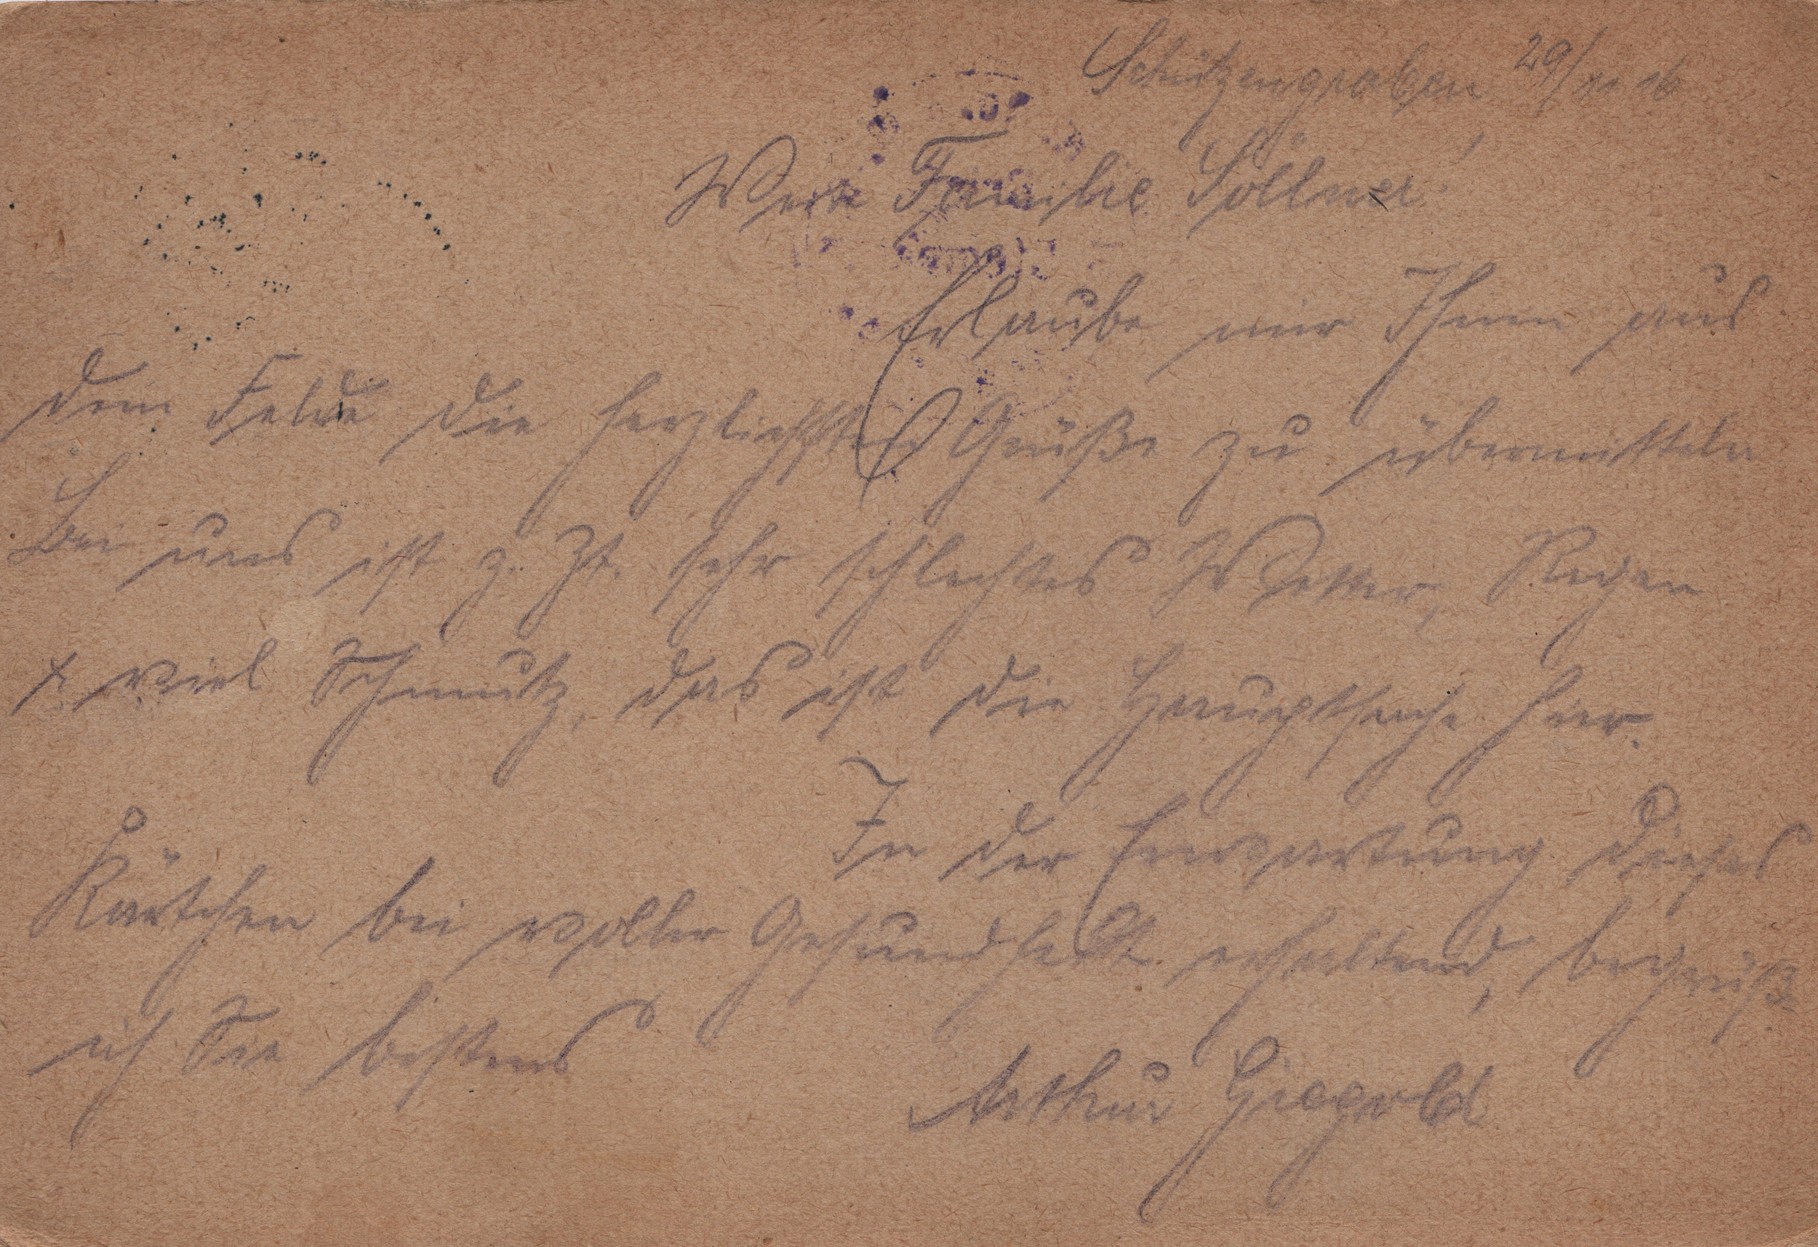 Schützengraben 29/11 16
Werte Familie Söllner!
Erlaube mir Ihnen aus
dem Felde die herzlichsten Grüße zu übermitteln
Bei uns ist z. Zt. sehr schlechtes Wetter, Regen
+ viel Schmutz, das ist die Hauptsache hier.
In der Erwartung dieses
Kärtchen bei voller Gesundheit erhaltend, begrüße
ich Sie bestens
Arthur Giegold